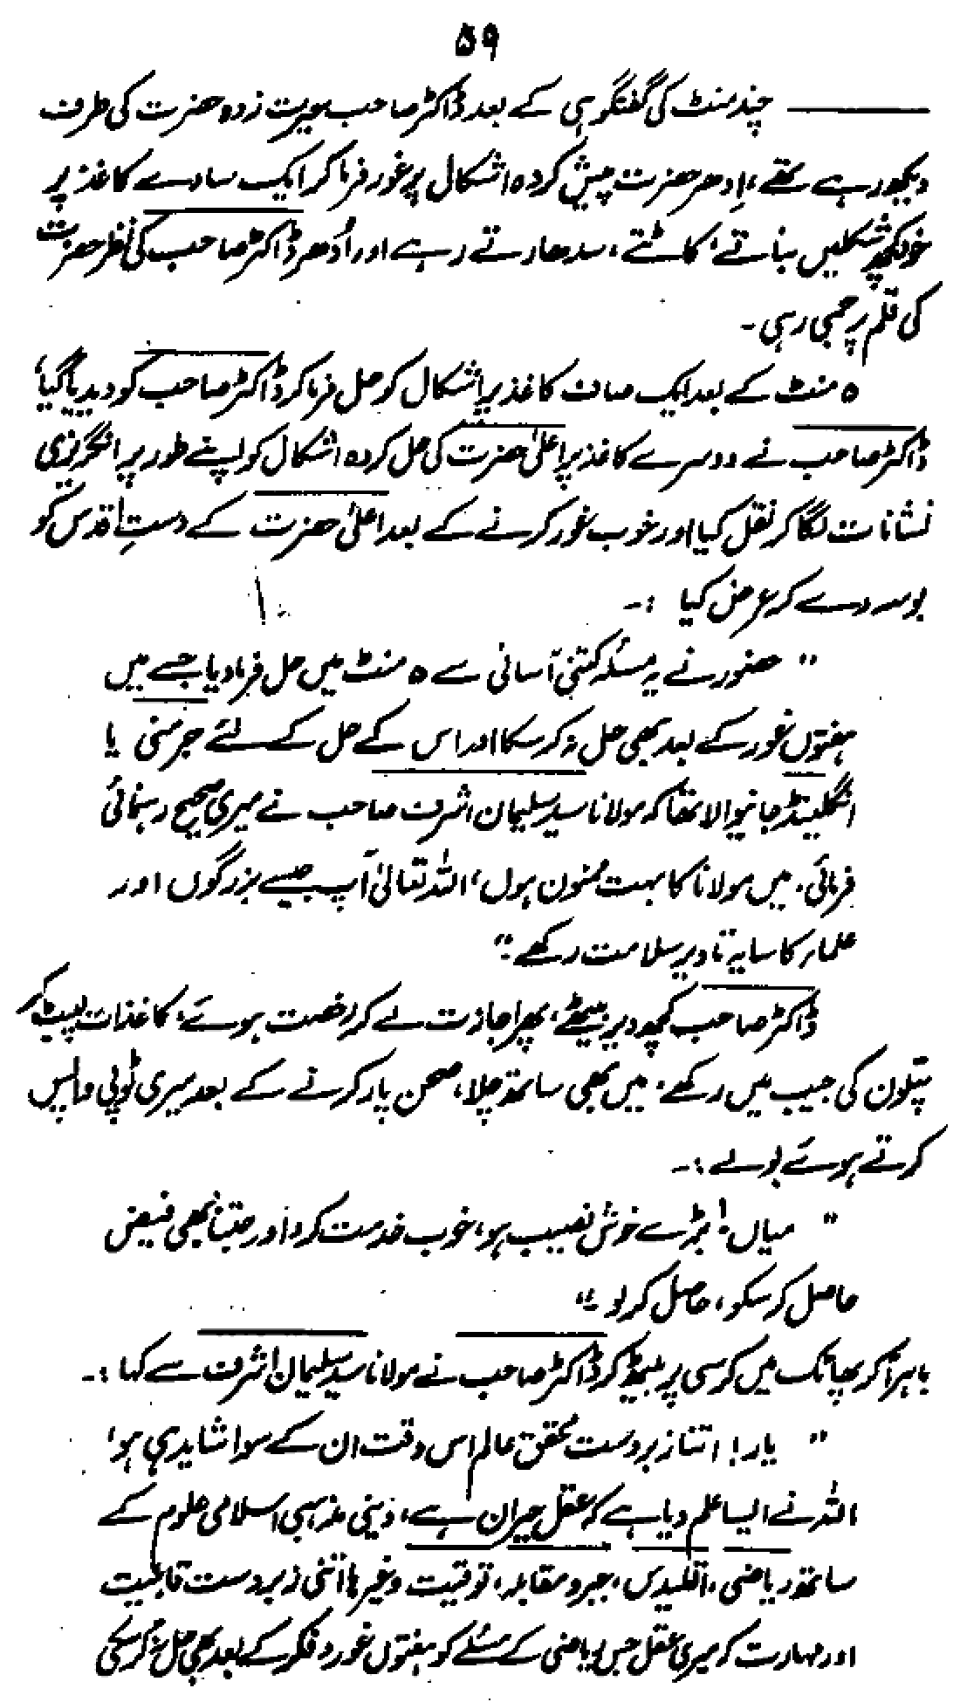 ۵۹
—— چند منٹ کی گفتگو ہی کے بعد ڈاکٹر صاحب حیرت زدہ حضرت کی طرف
دیکھ رہے تھے، اِدھر حضرت پیش کردہ اشکال پر غور فرما کر ایک سادے کاغذ پر
خود کچھ شکلیں بناتے، کاٹتے، سدھارتے رہے اور اُدھر ڈاکٹر صاحب کی نظر حضرت
کی قلم پر جمی رہی۔
۵ منٹ کے بعد ایک صاف کاغذ پر اشکال کو حل فرما کر ڈاکٹر صاحب کو دیدیا گیا،
ڈاکٹر صاحب نے دوسرے کاغذ پر اعلیٰ حضرت کی حل کردہ اشکال کو اپنے طور پر انگریزی
نشانات لگا کر نقل کیا اور خوب غور کرنے کے بعد اعلیٰ حضرت کے دستِ اقدس کو
بوسہ دے کر عرض کیا :۔
" حضور نے یہ مسئلہ کتنی آسانی سے ۵ منٹ میں حل فرما دیا جسے میں
ہفتوں غور کے بعد بھی حل نہ کر سکا اور اس کے حل کے لئے جرمنی یا
انگلینڈ جانیوالا تھا کہ مولانا سید سلیمان اشرف صاحب نے میری صحیح رہنمائی
فرمائی۔ میں مولانا کا بہت ممنون ہوں، اللہ تعالیٰ آپ جیسے بزرگوں اور
علماء کا سایہ تا دیر سلامت رکھے۔"
ڈاکٹر صاحب کچھ دیر بیٹھے، پھر اجازت لے کر رخصت ہوئے، کاغذات لپیٹ کر
پتلون کی جیب میں رکھے۔ میں بھی ساتھ چلا، صحن پار کرنے کے بعد میری ٹوپی واپس
کرتے ہوئے بولے :۔
" میاں! بڑے خوش نصیب ہو، خوب خدمت کرو اور جتنا بھی فیض
حاصل کر سکو، حاصل کر لو۔"
باہر آ کر پھاٹک میں کرسی پر بیٹھ کر ڈاکٹر صاحب نے مولانا سید سلیمان اشرف سے کہا :۔
" یار! اتنا زبردست محقق عالم اس وقت ان کے سوا شاید ہی ہو،
اللہ نے ایسا علم دیا ہے کہ عقل حیران ہے، دینی مذہبی اسلامی علوم کے
ساتھ ریاضی، اقلیدس، جبر و مقابلہ، توقیت وغیرہا اتنی زبردست قابلیت
اور مہارت کہ میری عقل جس ریاضی کے مسئلے کو ہفتوں غور و فکر کے بعد بھی حل نہ کر سکی